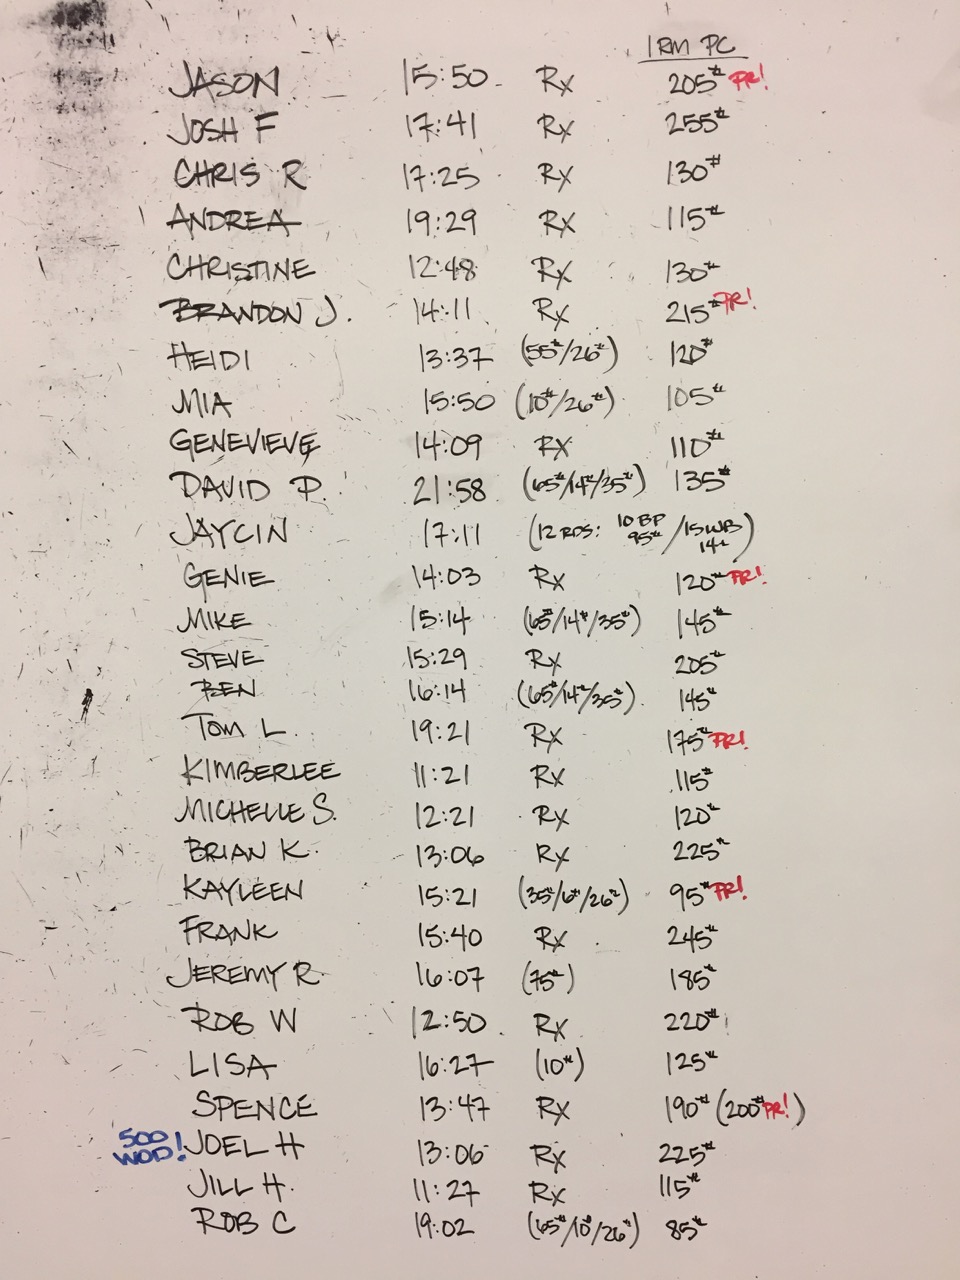 1 RM PC
JASON 15:50 Rx 205# PR!
JOSH F 17:41 Rx 255#
CHRIS R 17:25 Rx 130#
ANDREA 19:29 Rx 115#
CHRISTINE 12:48 Rx 130#
BRANDON J. 14:11 Rx 215# PR!
HEIDI 13:37 (55#/26#) 120#
MIA 15:50 (10#/26#) 105#
GENEVIEVE 14:09 RX 110#
DAVID P. 21:58 (65#/14#/35#) 135#
JAYCIN 17:11 (12 RDS: 10 BP 95# / 15 WB 14#)
GENIE 14:03 Rx 120# PR!
MIKE 15:14 (65#/14#/35#) 145#
STEVE 15:29 Rx 205#
BEN 16:14 (65#/14#/35#) 145#
TOM L. 19:21 Rx 175# PR!
KIMBERLEE 11:21 Rx 115#
MICHELLE S. 12:21 Rx 120#
BRIAN K. 13:06 Rx 225#
KAYLEEN 15:21 (35#/6#/26#) 95# PR!
FRANK 15:40 Rx 245#
JEREMY R. 16:07 (75#) 185#
ROB W 12:50 Rx 220#
LISA 16:27 (10#) 125#
SPENCE 13:47 Rx 190# (200# PR!)
500 WOD! JOEL H 13:06 Rx 225#
JILL H. 11:27 Rx 115#
ROB C 19:02 (65#/10#/26#) 85#